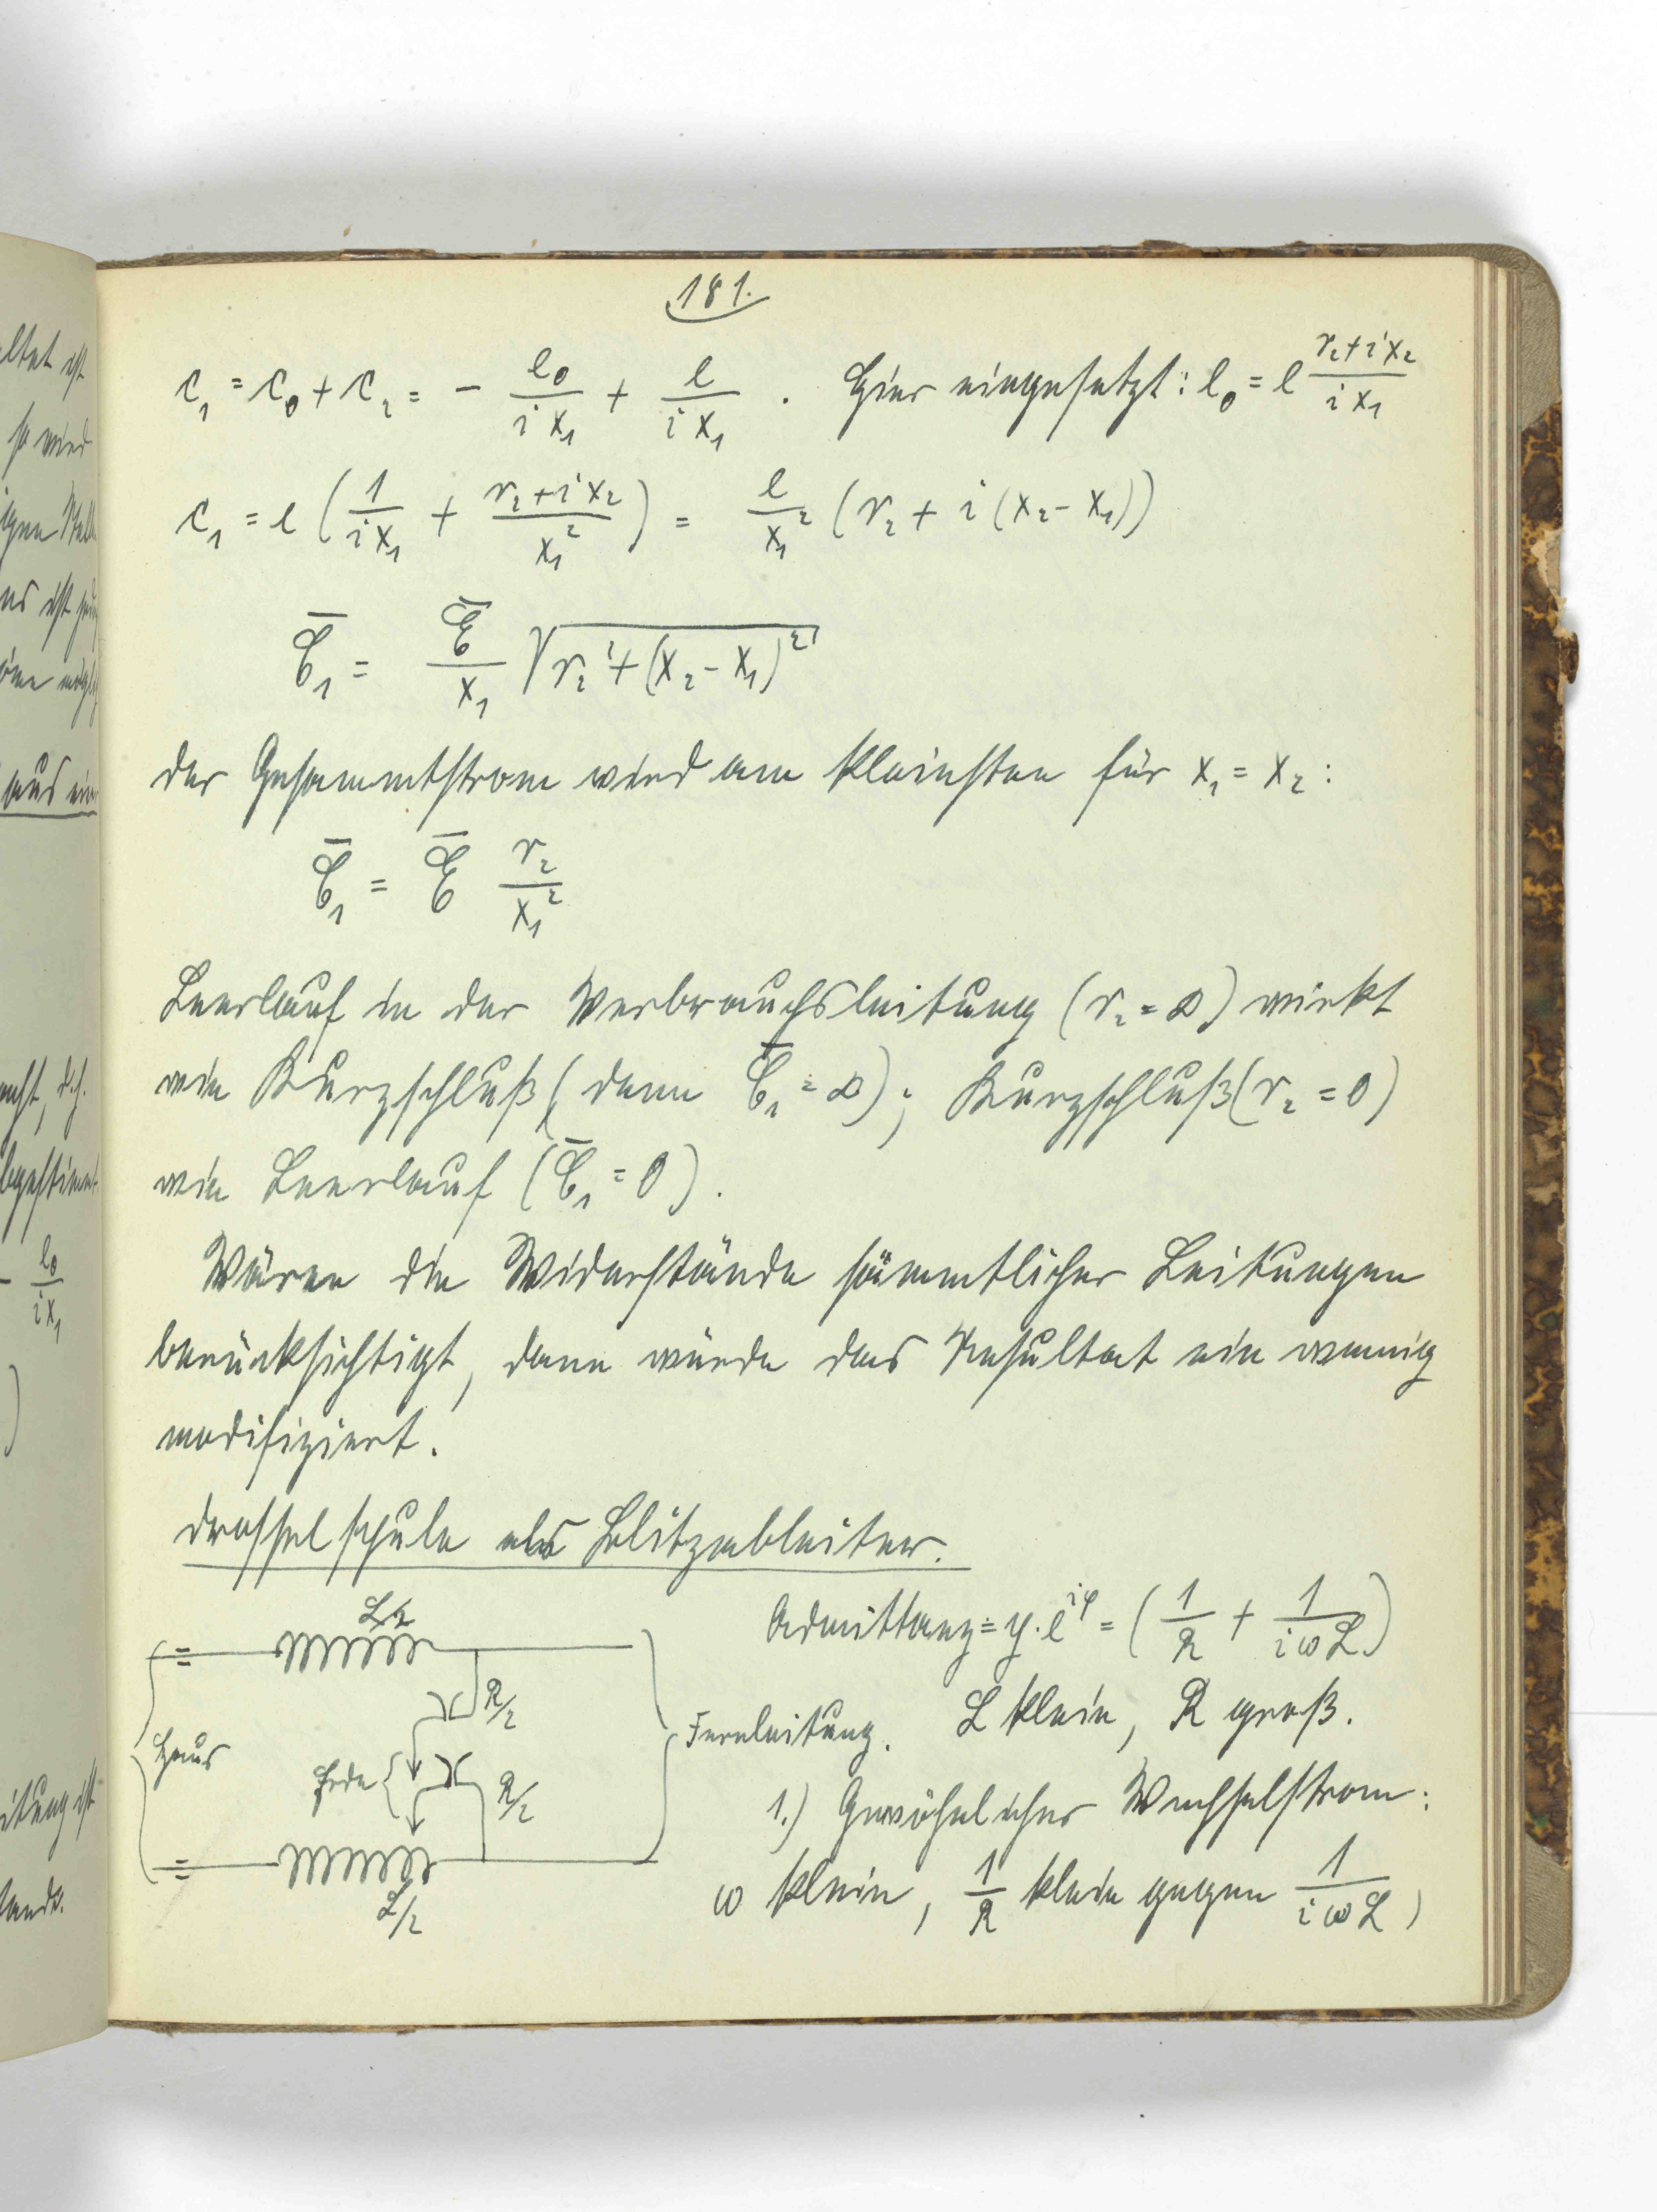 181.
c₁ = c₀ + c₂ = − e₀/(i x₁) + e/(i x₁) . Hier eingesetzt: e₀ = e (r₂ + i x₂)/(i x₁)
c₁ = e (1/(i x₁) + (r₂ + i x₂)/x₁²) = e/x₁² (r₂ + i (x₂ − x₁))
C̄₁ = Ē/x₁ √(r₂² + (x₂ − x₁)²)
der Gesammtstrom wird am kleinsten für x₁ = x₂ :
C̄₁ = Ē r₂/x₁²
Leerlauf in der Verbrauchsleitung (r₂ = ∞) wirkt
wie Kurzschluß (denn C̄₁ = ∞); Kurzschluß (r₂ = 0)
wie Leerlauf (C̄₁ = 0).
Wären die Widerstände sämmtlicher Leitungen
berücksichtigt, dann würde das Resultat ein wennig
modifiziert.
Drosselspule als Blitzableiter.
L/2
Admittanz = y · e^{iφ} = (1/R + 1/(iωL))
R/2
Haus
Fernleitung. L klein, R groß.
Erde
R/2
1.) Gewöhnlicher Wechselstrom :
ω klein, 1/R klein gegen 1/(iωL)
L/2
ltet ist
so wird
igen
ns ist
aus
acht, d.h.
− e₀/(i x₁)
)
itung ist